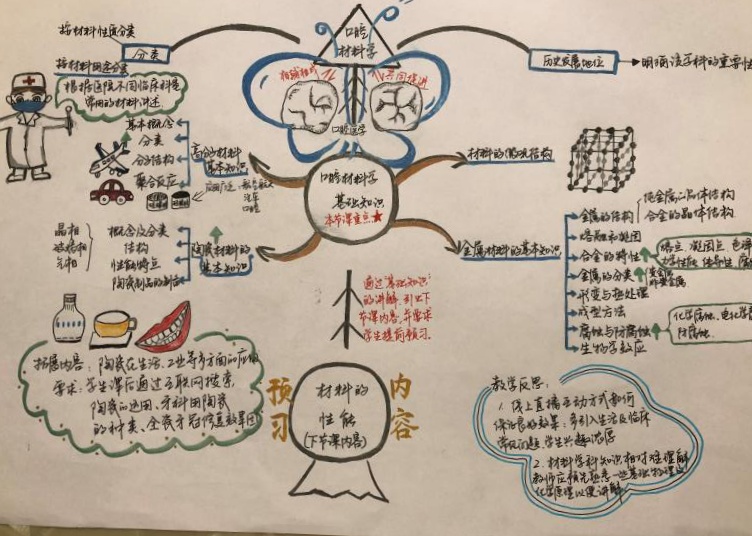 按材料性质分类
分类
按材料用途分类
根据医院不同临床科是
常用的材料讲述
口腔
材料学
相辅相成
共同促进
口腔医学
历史发展地位
明确该学科的重要性
口腔材料学
基础知识
本节课重点★
高分子材料
基本知识
基本概念
分类
分子结构
聚合反应
应用广泛
汽车
口腔
陶瓷材料的
基本知识
概念及分类
结构
性能特点
陶瓷制品的制备
晶相
玻璃相
气相
材料的微观结构
金属材料的基本知识
金属的结构
纯金属的晶体结构
合金的晶体结构
熔融和凝固
合金的特性
熔点 凝固点
金属的分类
贵金属
非贵金属
形变与热处理
成型方法
腐蚀与防腐蚀
化学腐蚀、电化学腐
防腐蚀
生物学效应
通过基础知识
的讲解,引出下
节课内容,并要求
学生提前预习。
拓展内容:陶瓷在生活、工业等多方面的应用
要求:学生课后通过互联网搜索,
陶瓷的运用、牙科用陶瓷
的种类、全瓷牙冠修复效果图
预习
内容
材料的
性能
(下节课内容)
教学反思:
1. 线上直播互动方式如何
保证良好效果:多引入生活及临床
常见问题、学生兴趣浓厚
2. 材料学科知识相对难理解
教师应预先熟悉一些基础物理及
化学原理以便讲解